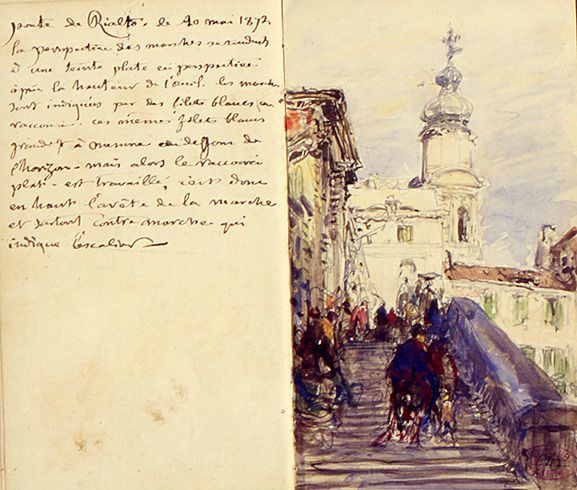 ponte de Rialto, le 20 mai 1872
la perspective des marches se réduit
à une teinte plate en perspective
après la hauteur de l'œil. les marches
sont indiquées par des filets blancs en
raccourci. ces mêmes filets blancs
à mesure de
l'horizon - mais alors le raccourci
plat - est travaillé, c'est donc
en haut l'arête de la marche
et surtout contre marche qui
indique l'escalier